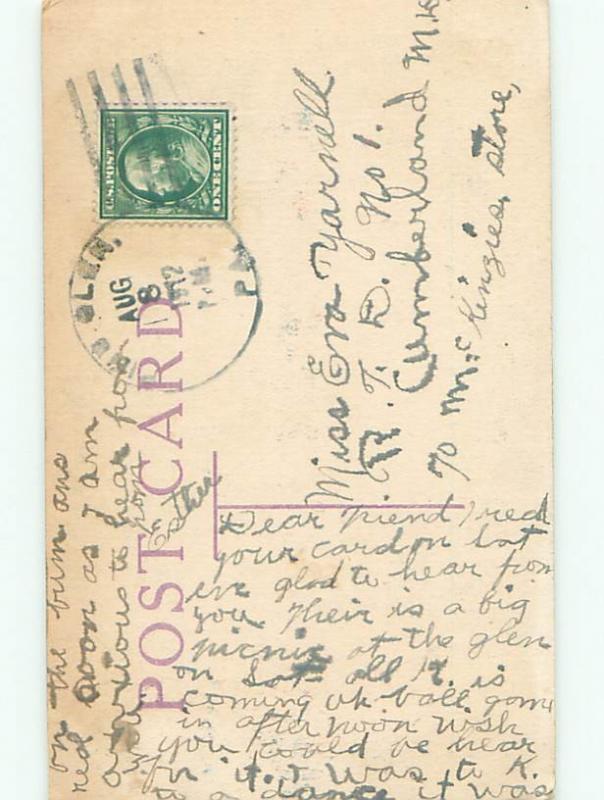 POST CARD
U.S. POSTAGE
ONE CENT
GLEN,
AUG
8
1912
P.M.
PA
Miss Eva Yarnell
R. F. D. No 1.
Cumberland Md
% Mr. McKinzies store,
Dear friend I recd
your card on Sat
ive glad to hear from
you Their is a big
picnic at the glen
on Sat all K. is
coming up ball game
in after noon wish
you could be hear
for it. I was to K.
to a dance it was
on the bum ans
red soon as I am
anxious to hear from
Esther